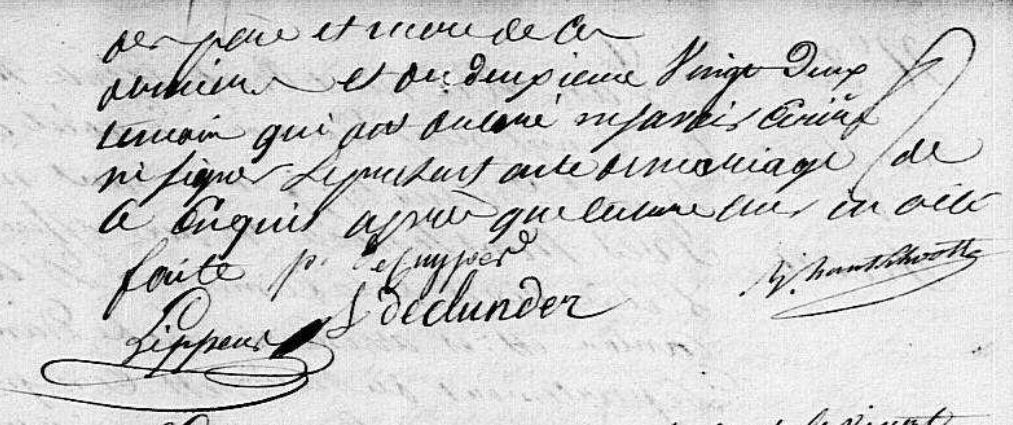 des pere et mere de ces
derniers et du deuxieme Vingt Deux
temoin qui ont declaré ne savoir écrire
ni signer Le present acte de mariage de
ce Enquis après que lecture leur en a été
faite p. deCuyper
Lippens L declunder